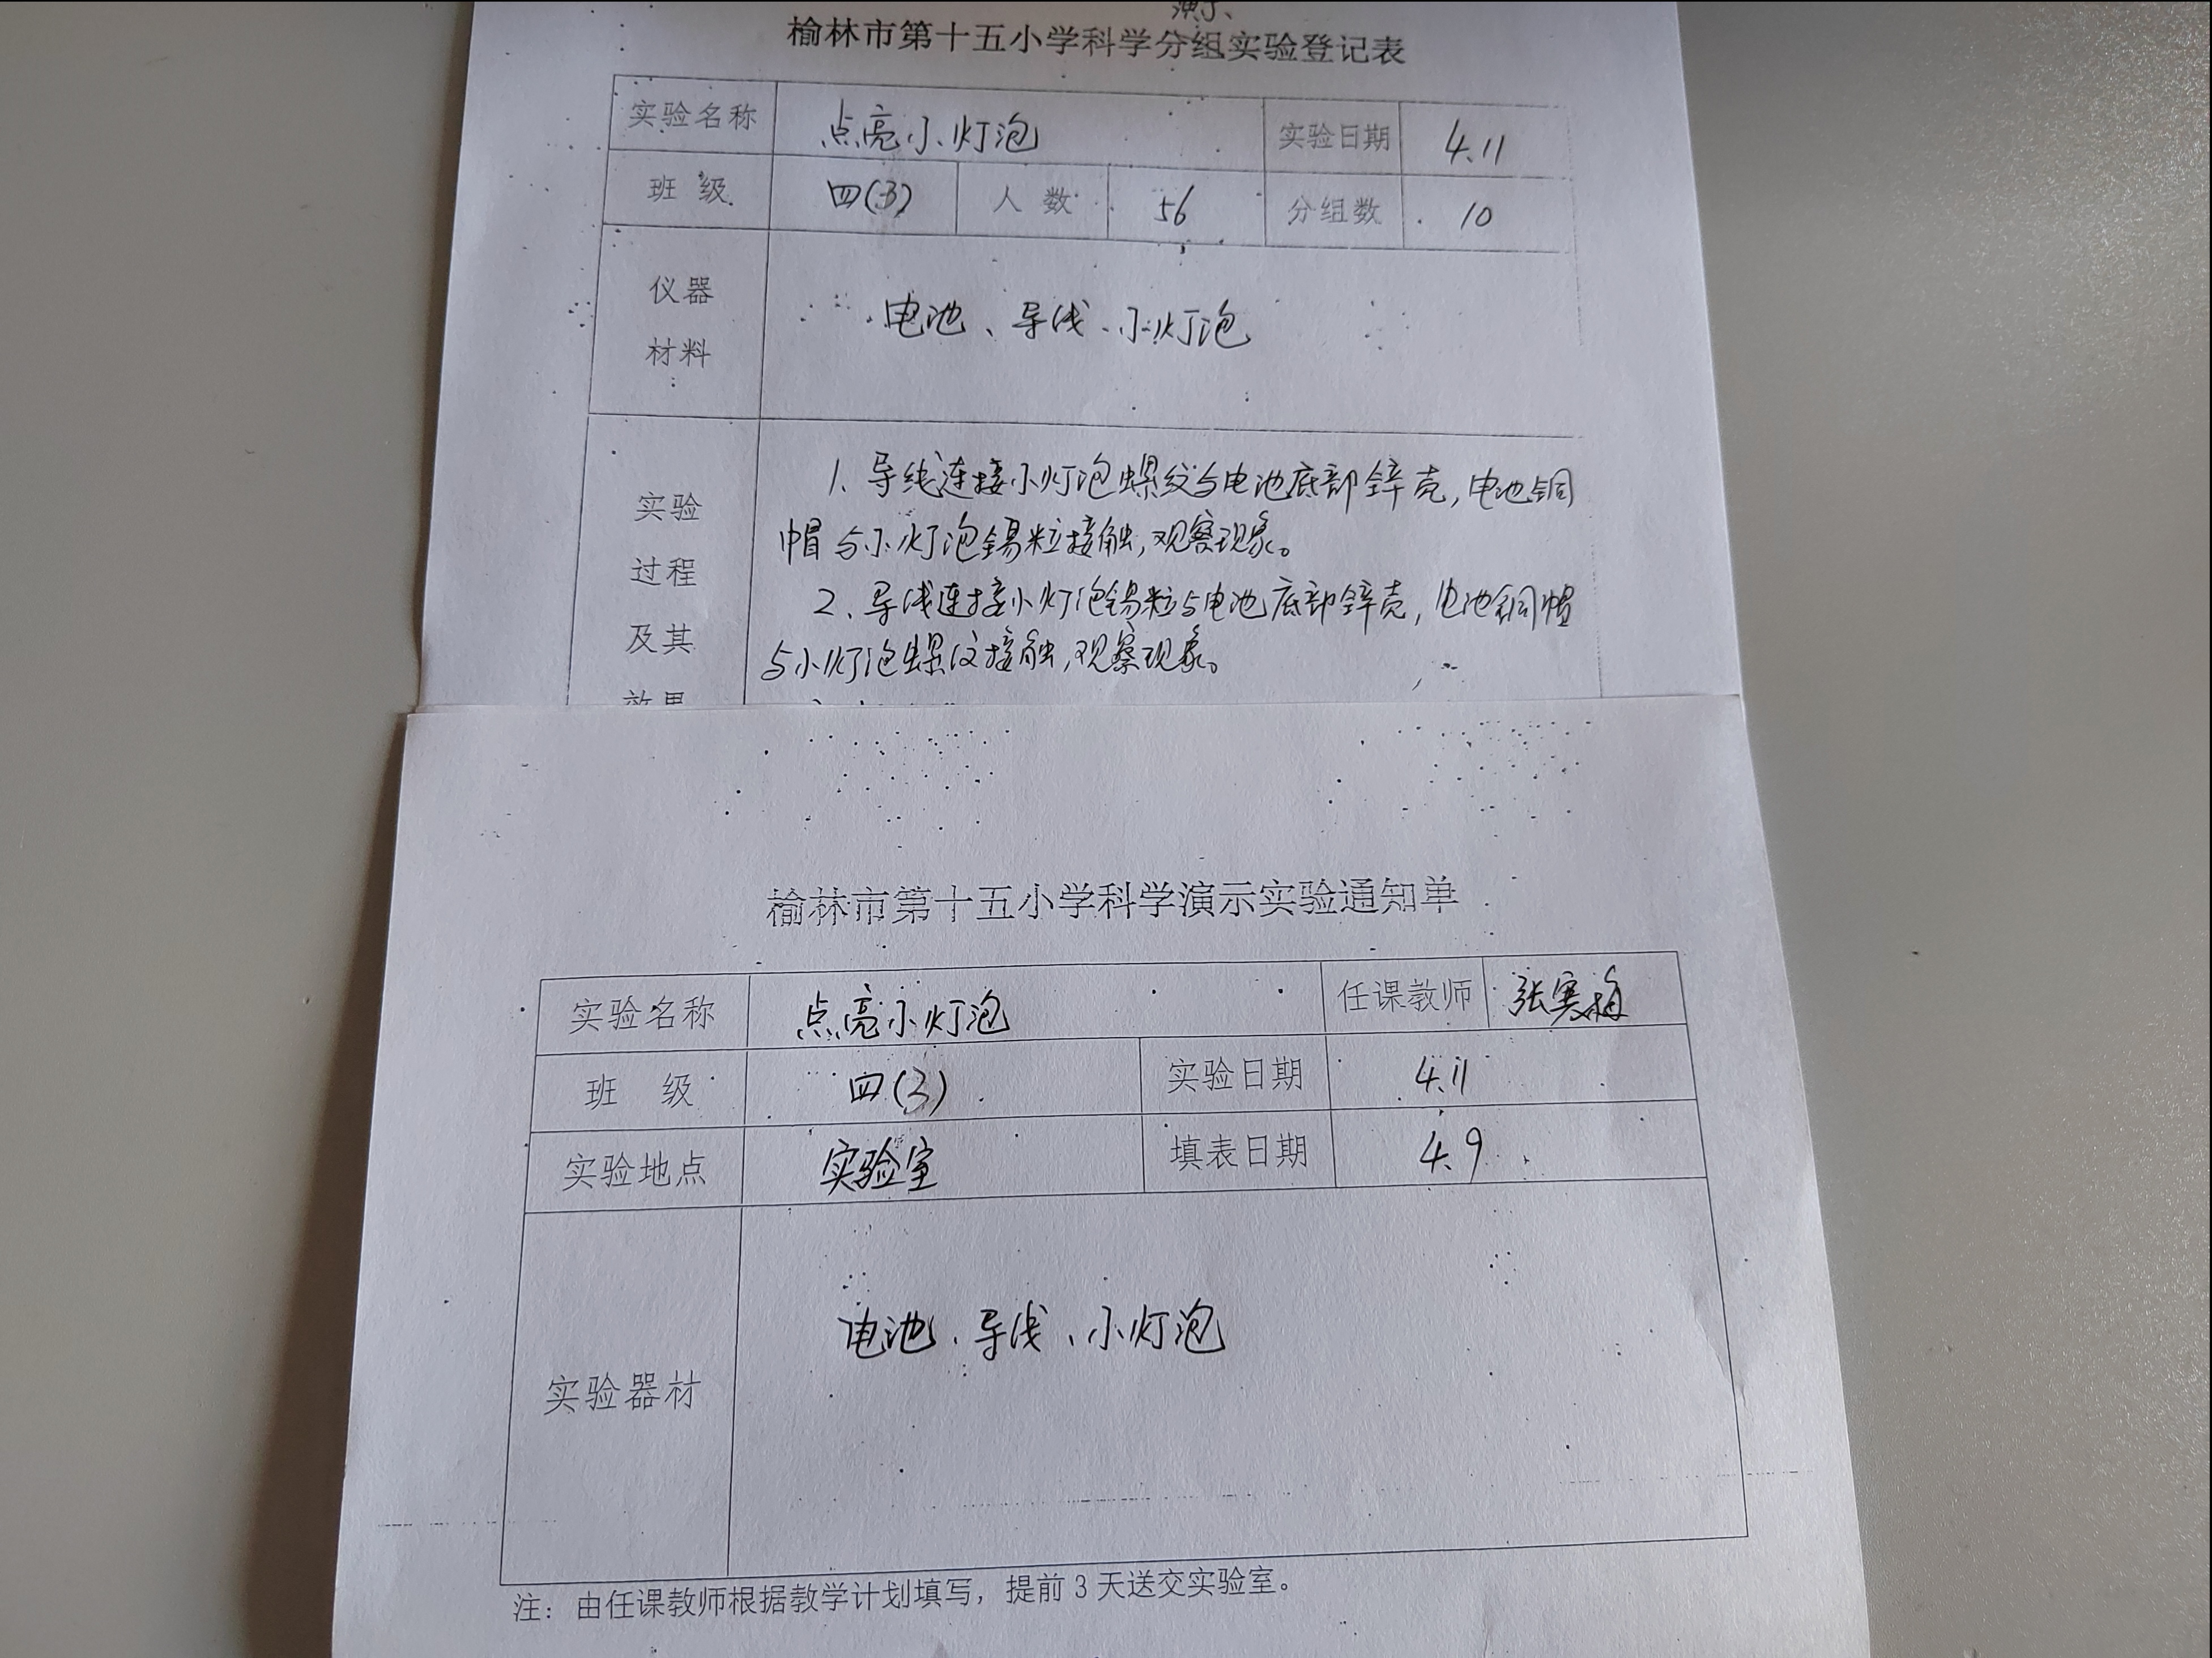 演示
榆林市第十五小学科学分组实验登记表
实验名称 点亮小灯泡 实验日期 4.11
班 级 四(3) 人 数 56 分组数 10
仪器
材料
电池、导线、小灯泡
实验
过程
及其
效果
1、导线连接小灯泡螺纹与电池底部锌壳,电池铜
帽与小灯泡锡粒接触,观察现象。
2、导线连接小灯泡锡粒与电池底部锌壳,电池铜帽
与小灯泡螺纹接触,观察现象。
榆林市第十五小学科学演示实验通知单
实验名称 点亮小灯泡 任课教师 张寒梅
班 级 四(3) 实验日期 4.11
实验地点 实验室 填表日期 4.9
实验器材 电池、导线、小灯泡
注：由任课教师根据教学计划填写，提前 3 天送交实验室。